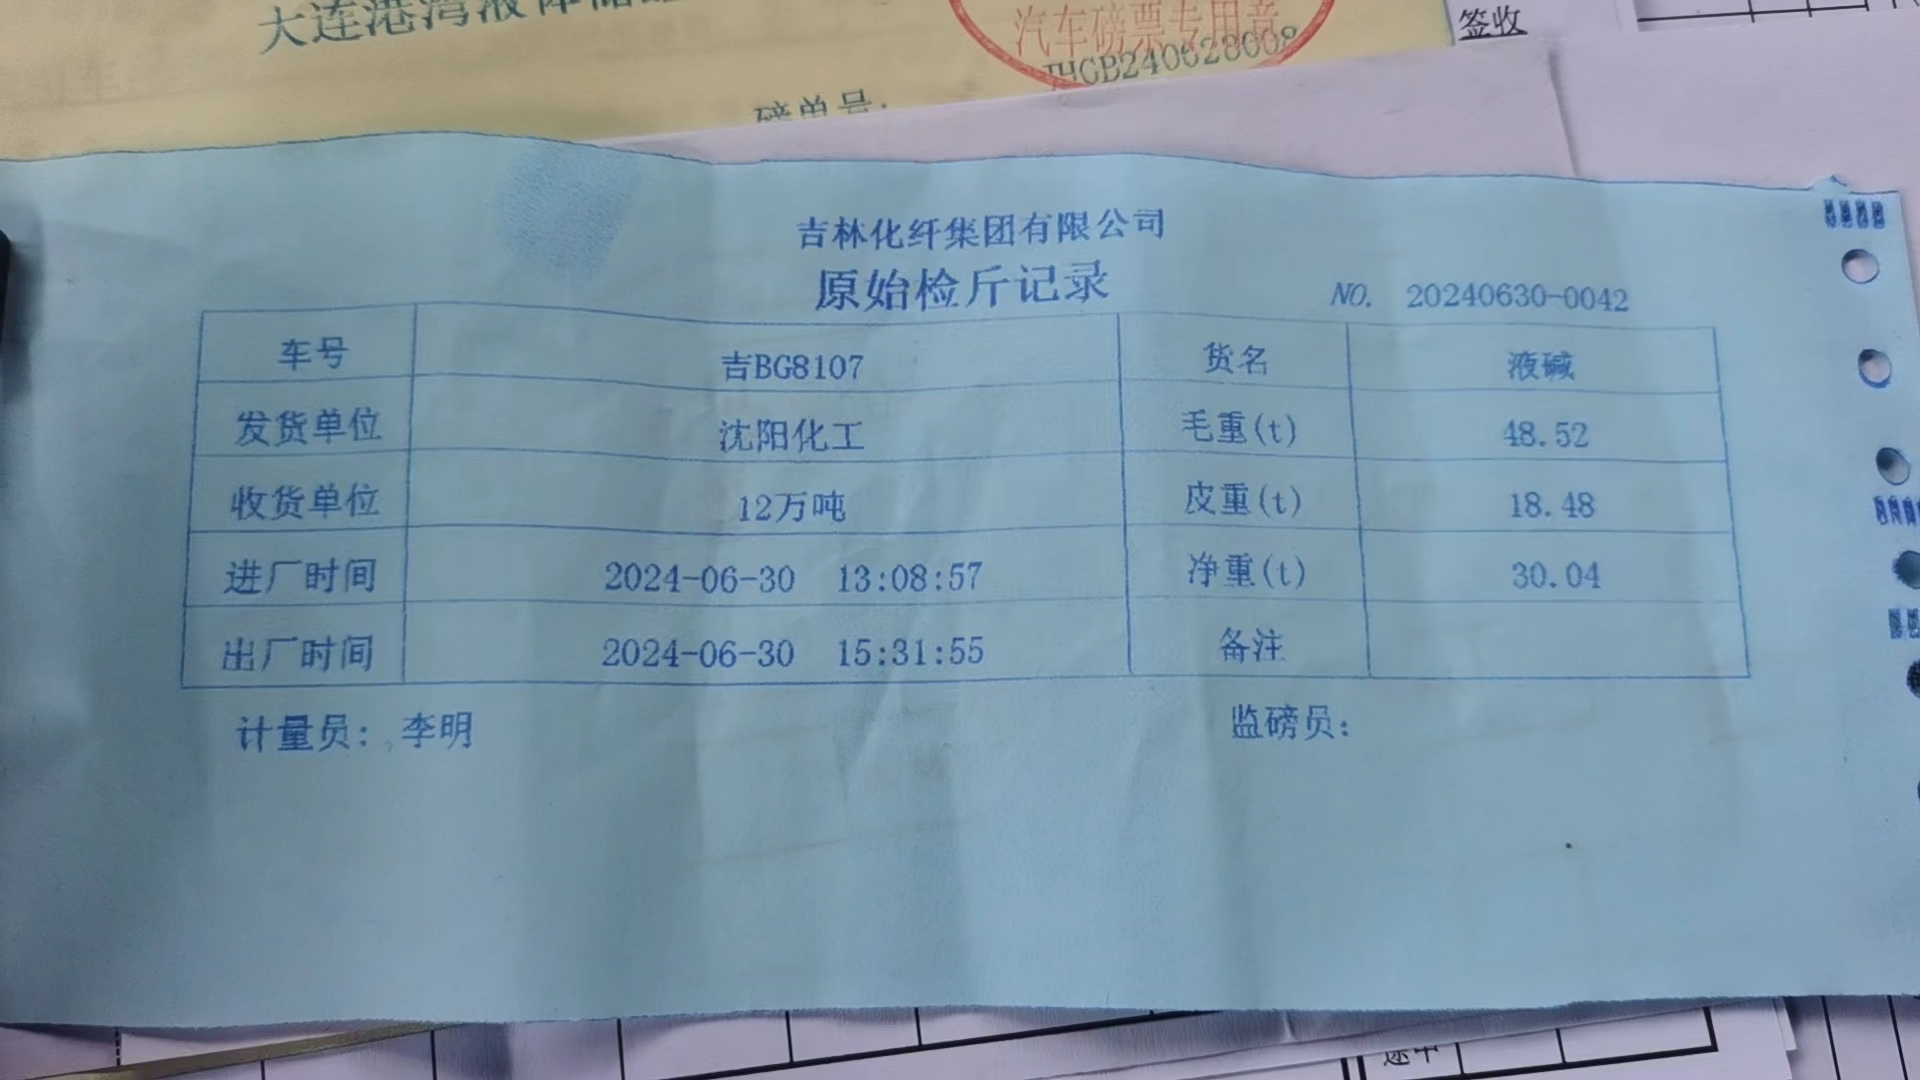 大连港湾液体储
汽车磅票专用章
JHGB240628008
签收
磅单号:
吉林化纤集团有限公司
原始检斤记录
NO. 20240630-0042
车号 吉BG8107 货名 液碱
发货单位 沈阳化工 毛重(t) 48.52
收货单位 12万吨 皮重(t) 18.48
进厂时间 2024-06-30 13:08:57 净重(t) 30.04
出厂时间 2024-06-30 15:31:55 备注
计量员: 李明 监磅员:
途中